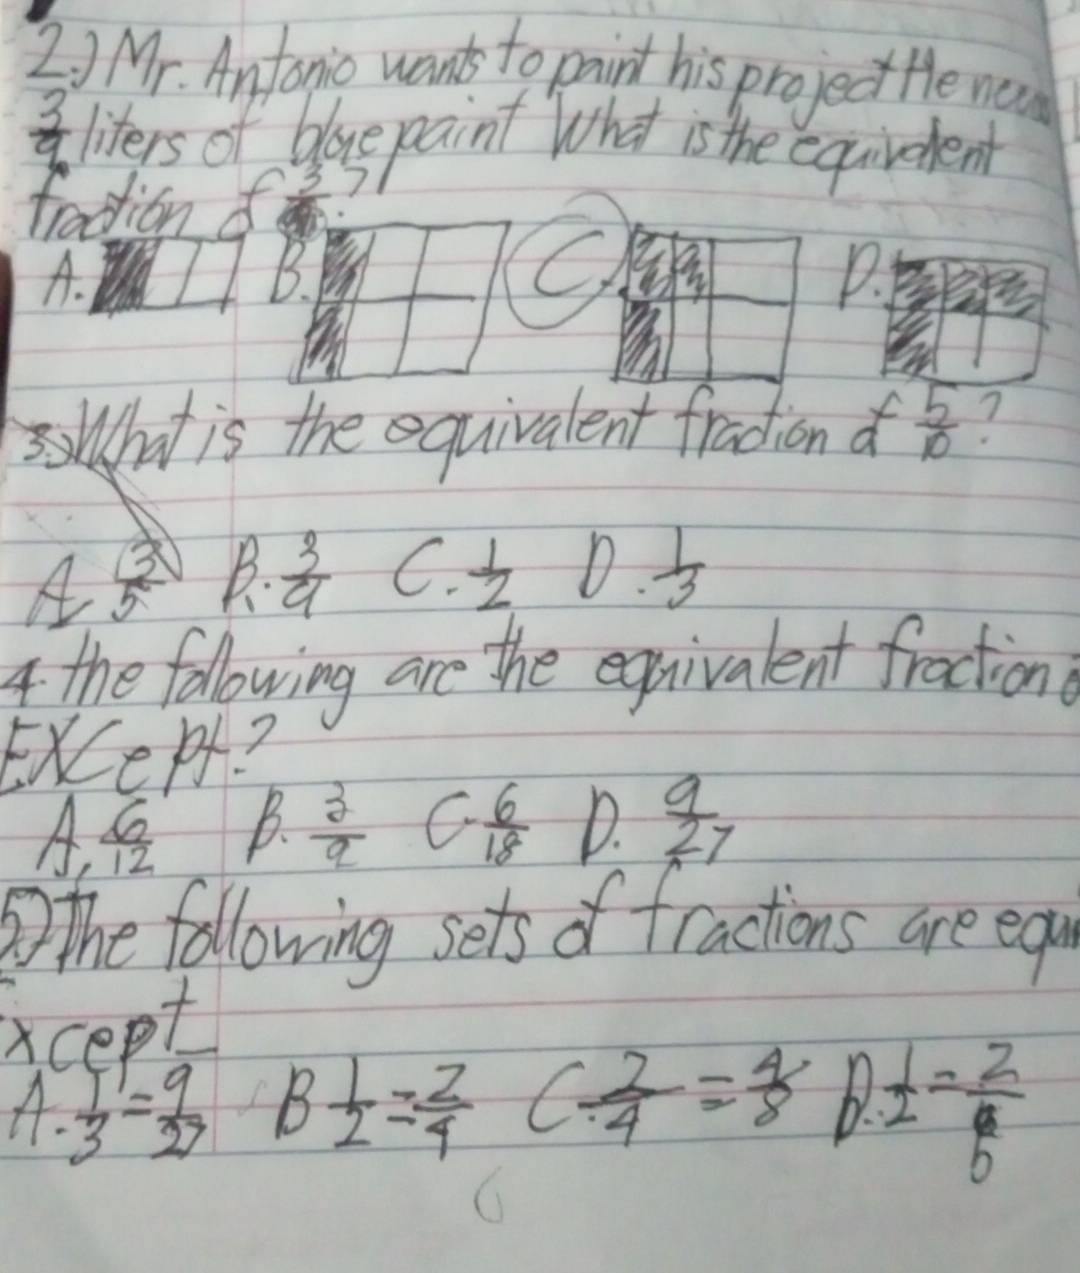 2.) Mr. Antonio wants to paint his project He
3/9 liters of blue paint What is the equivalent
fraction of 3 ?
A. B. C. D.
3.) What is the equivalent fraction of 5/10?
A. 3/5 B. 3/9 C. 1/2 D. 1/3
4. the following are the equivalent fraction
EXCept?
A. 6/12 B. 3/9 C. 6/18 D. 9/27
5.) The following sets of fractions are
xcept
A. 1/3 = 9/27 B 1/2 = 2/4 C. 2/4 = 4/8 D. 1/2 = 2/6